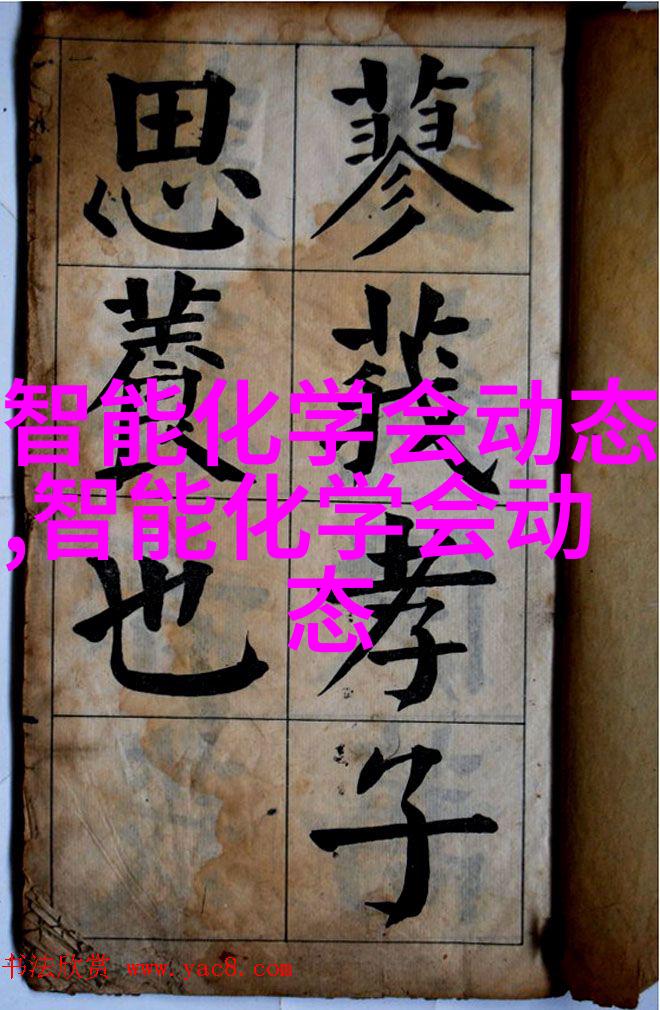 蓼莪孝子
思養也
智能化学会动态
,智能化学会动
态
书法欣赏 www.yac8.com